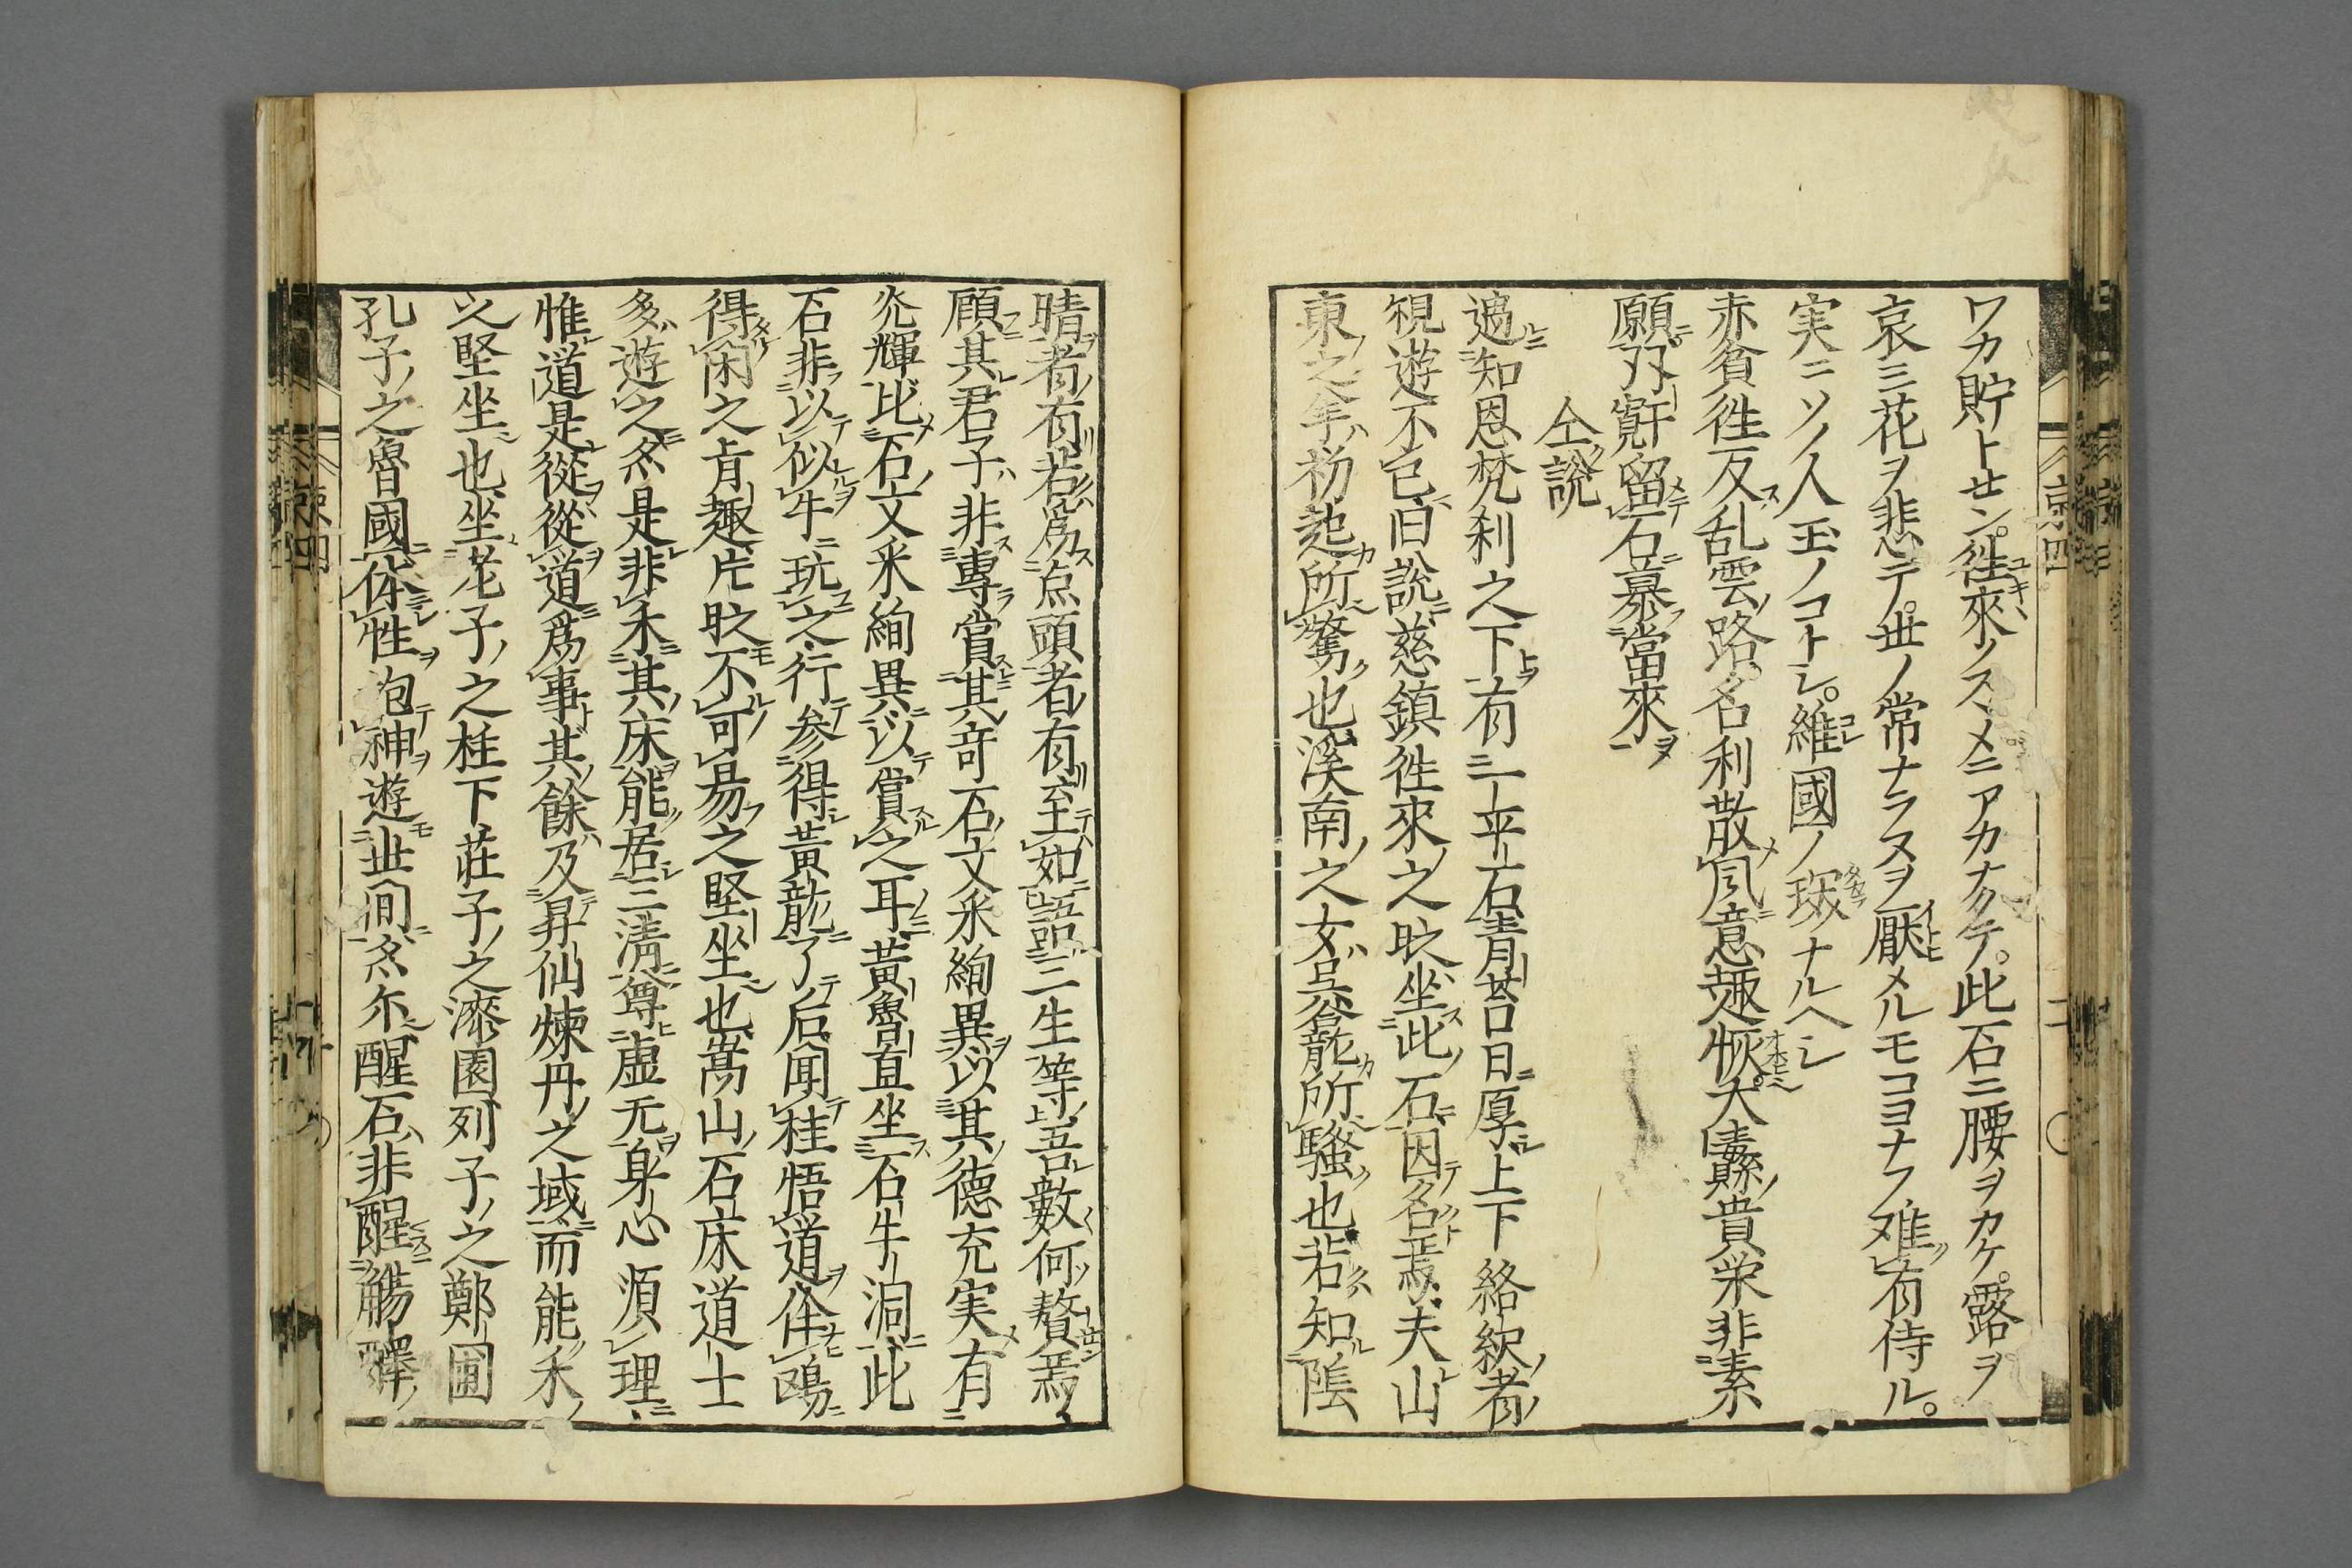 ワカ貯トセン。徃來ノスヽメニアカナクテ。此石ニ腰ヲカケ。露ヲ
哀ミ花ヲ悲テ。世ノ常ナラヌヲ厭メルモココヨナフ难有待ル。
実ニソノ人玉ノコトシ。維國ノ琛ナルヘシ
赤貧徃反乱雲路。名利散風意趣恢。大隱貴栄非素
願。双幹留石慕當來
仝說
適知恩梵刹之下有一平石青苔日厚上下絡繹者
視遊不已旧說慈鎮徃來之時坐此石因名焉夫山
東之羊初起所驚也溪南之女呂公龍所騒也若知陰
晴者有若為点頭者有至如語三生等吾數何贅焉
顧其君子非專賞其竒石文釆絢異以其德充実有
光輝比石文釆絢異以賞之耳黃魯直坐石牛洞此
石非以似牛玩之行参得黃龍了后聞桂悟道伴鷗
得閑之肯趣片時不可易之堅坐也嵩山石床道士
多遊之然是非禾其床能居三清尊虛无身心須理
惟道是從從道為事其餘及昇仙煉丹之域而能禾
之堅坐也坐老子之柱下莊子之漆園列子之鄭圃
孔子之魯國体性抱神遊世间然尔醒石非醒觴醳
京四
二